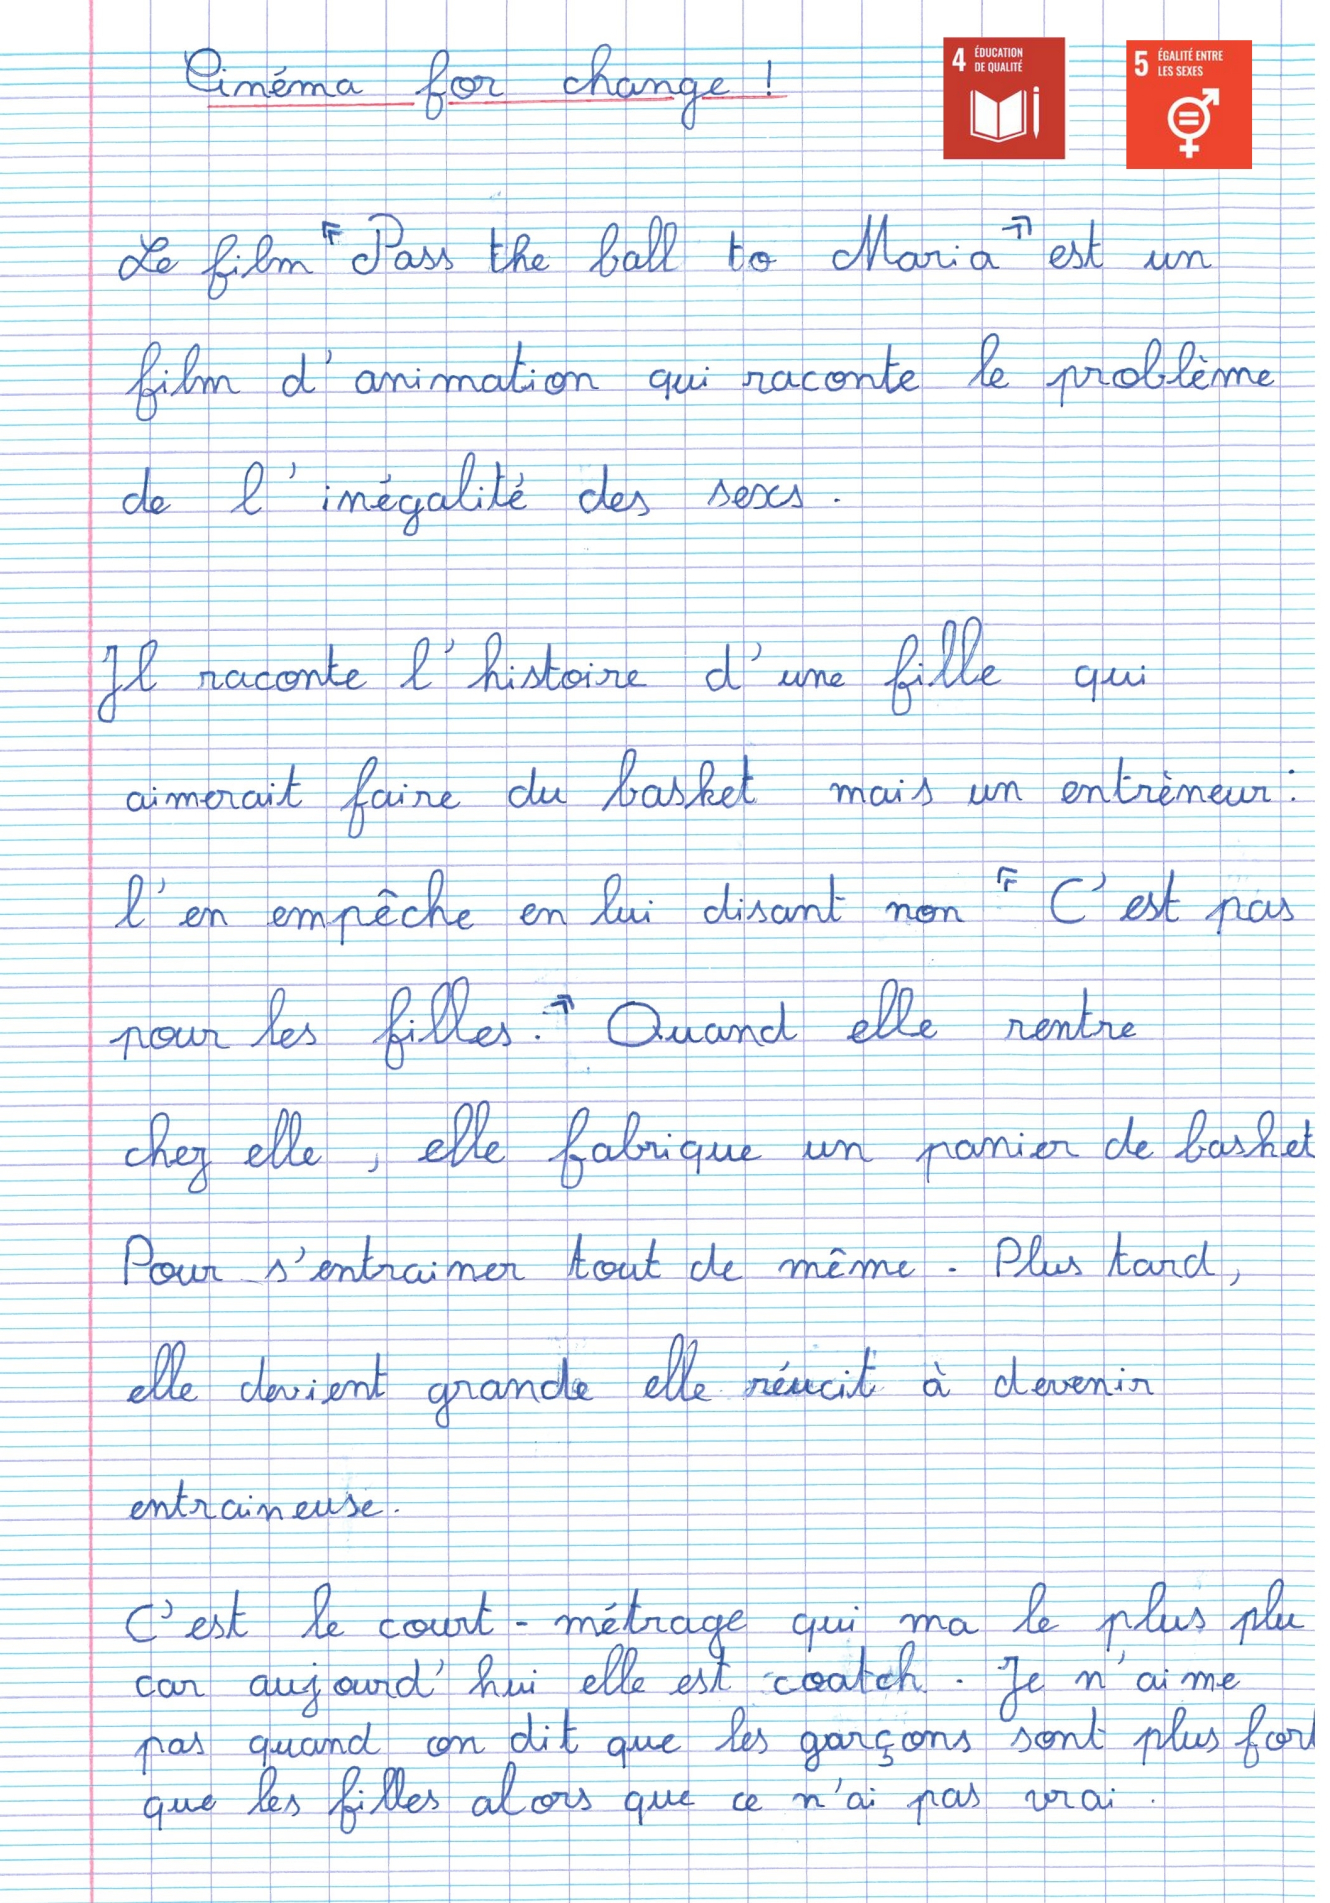 Cinéma for change !
4 ÉDUCATION
DE QUALITÉ
5 ÉGALITÉ ENTRE
LES SEXES
Le film « Pass the ball to Maria » est un
film d'animation qui raconte le problème
de l'inégalité des sexs.
Il raconte l'histoire d'une fille qui
aimerait faire du basket mais un entrèneur :
l'en empêche en lui disant non « C'est pas
pour les filles. » Quand elle rentre
chez elle, elle fabrique un panier de basket
Pour s'entrainer tout de même. Plus tard,
elle devient grande elle réucit à devenir
entraineuse.
C'est le court-métrage qui ma le plus plu
car aujourd'hui elle est coatch. Je n'aime
pas quand on dit que les garçons sont plus fort
que les filles alors que ce n'ai pas vrai.